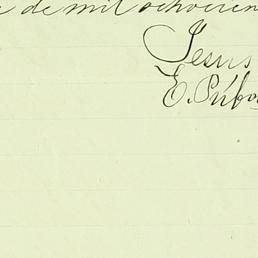 de mil ochocien
Jesus
E. Púbo